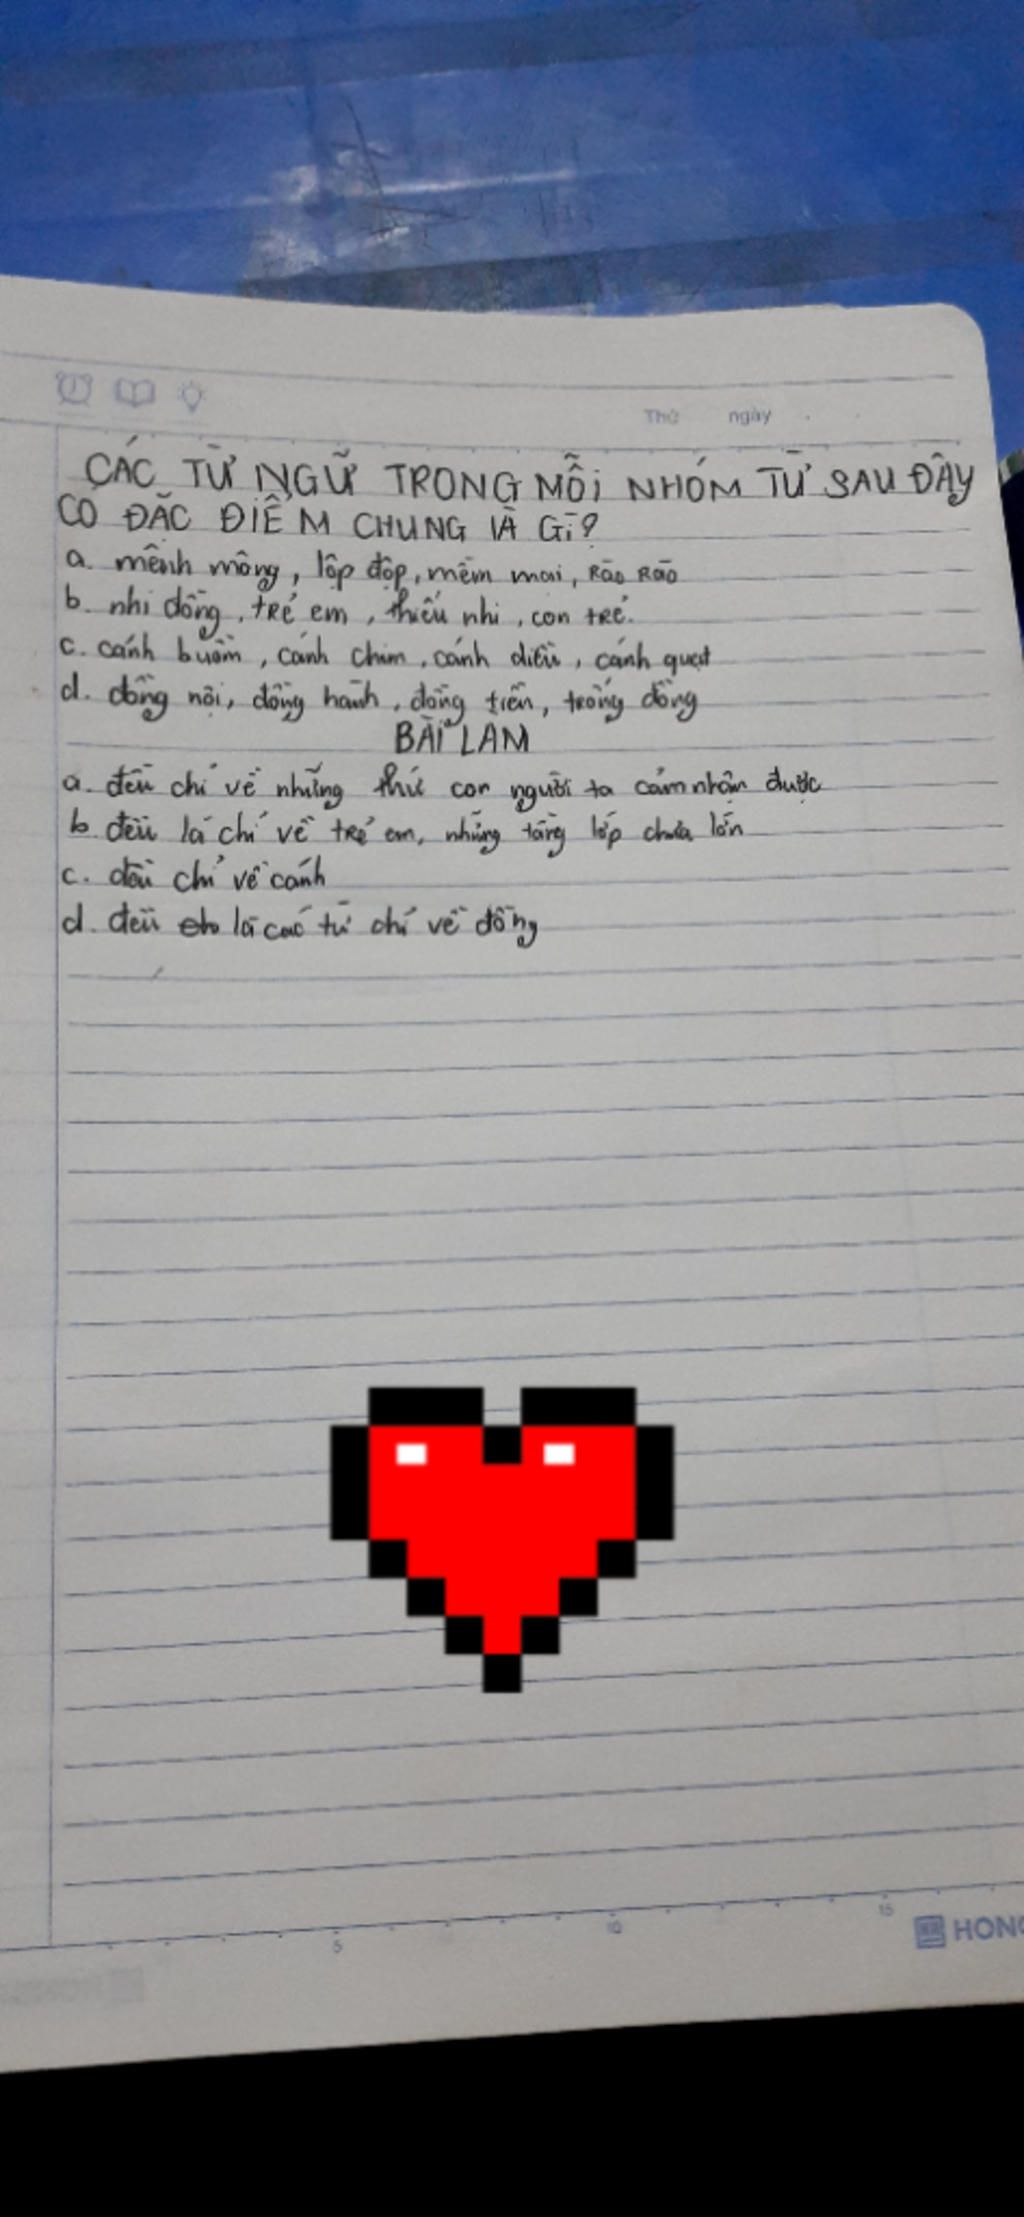 Thứ ngày
CÁC TỪ NGỮ TRONG MỖI NHÓM TỪ SAU ĐÂY
CÓ ĐẶC ĐIỂM CHUNG LÀ GÌ?
a. mênh mông, lộp độp, mềm mại, Rào Rào
b. nhi đồng, trẻ em, thiếu nhi, con trẻ.
c. cánh buồm, cánh chim, cánh diều, cánh quạt
d. đồng nội, đồng hành, đồng tiền, trống đồng
BÀI LÀM
a. đều chỉ về những thứ con người ta cảm nhận được
b. đều là chỉ về trẻ em, những tầng lớp chưa lớn
c. đều chỉ về cánh
d. đều là các từ chỉ về đồng
5 10 15
HONG